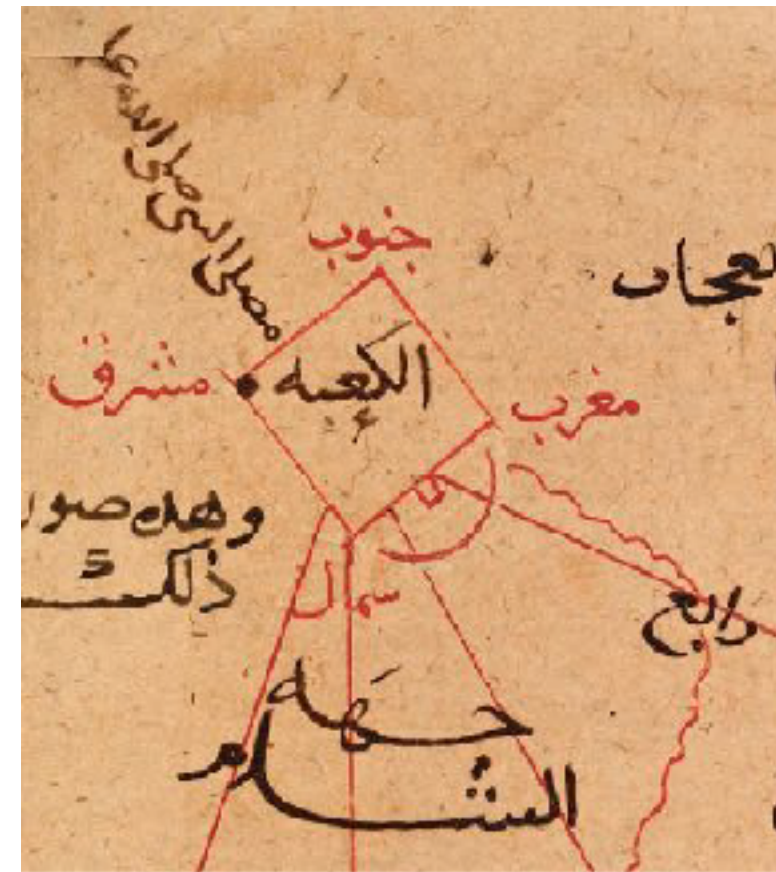 مصلى النبي صلى الله
جنوب
مشرق
الكعبه
مغرب
وهذه صور
ذلك
شمال
رابع
جهه
الشام